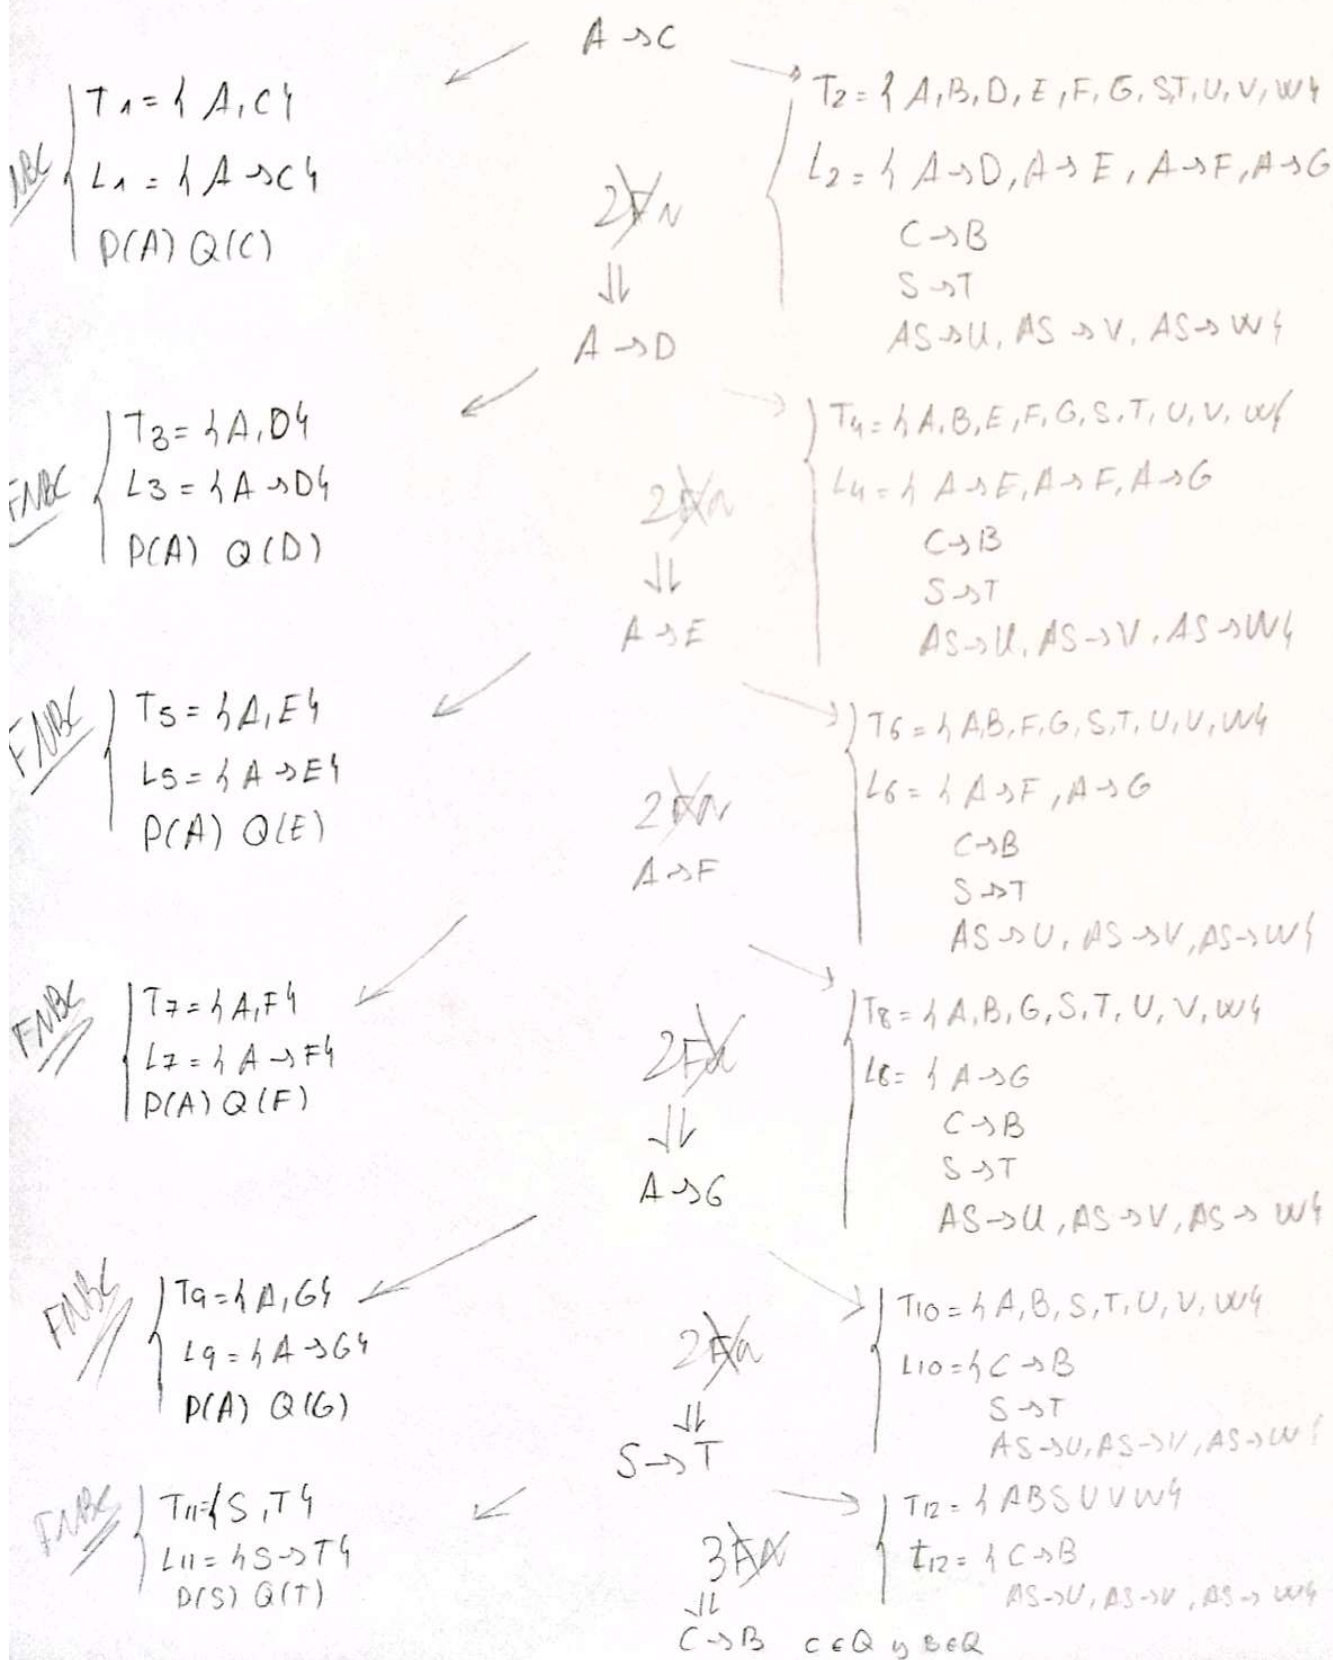 A → C
T1 = { A, C }
L1 = { A → C }
P(A) Q(C)
T2 = { A, B, D, E, F, G, S, T, U, V, W }
L2 = { A → D, A → E, A → F, A → G
C → B
S → T
AS → U, AS → V, AS → W }
2FN
⇓
A → D
FNBC
T3 = { A, D }
L3 = { A → D }
P(A) Q(D)
T4 = { A, B, E, F, G, S, T, U, V, W }
L4 = { A → E, A → F, A → G
C → B
S → T
AS → U, AS → V, AS → W }
2FN
⇓
A → E
FNBC
T5 = { A, E }
L5 = { A → E }
P(A) Q(E)
T6 = { A, B, F, G, S, T, U, V, W }
L6 = { A → F, A → G
C → B
S → T
AS → U, AS → V, AS → W }
2FN
A → F
FNBC
T7 = { A, F }
L7 = { A → F }
P(A) Q(F)
T8 = { A, B, G, S, T, U, V, W }
L8 = { A → G
C → B
S → T
AS → U, AS → V, AS → W }
2FN
⇓
A → G
FNBC
T9 = { A, G }
L9 = { A → G }
P(A) Q(G)
T10 = { A, B, S, T, U, V, W }
L10 = { C → B
S → T
AS → U, AS → V, AS → W }
2FN
⇓
S → T
FNBC
T11 = { S, T }
L11 = { S → T }
P(S) Q(T)
T12 = { A B S U V W }
L12 = { C → B
AS → U, AS → V, AS → W }
3FN
⇓
C → B C ∈ Q y B ∈ Q